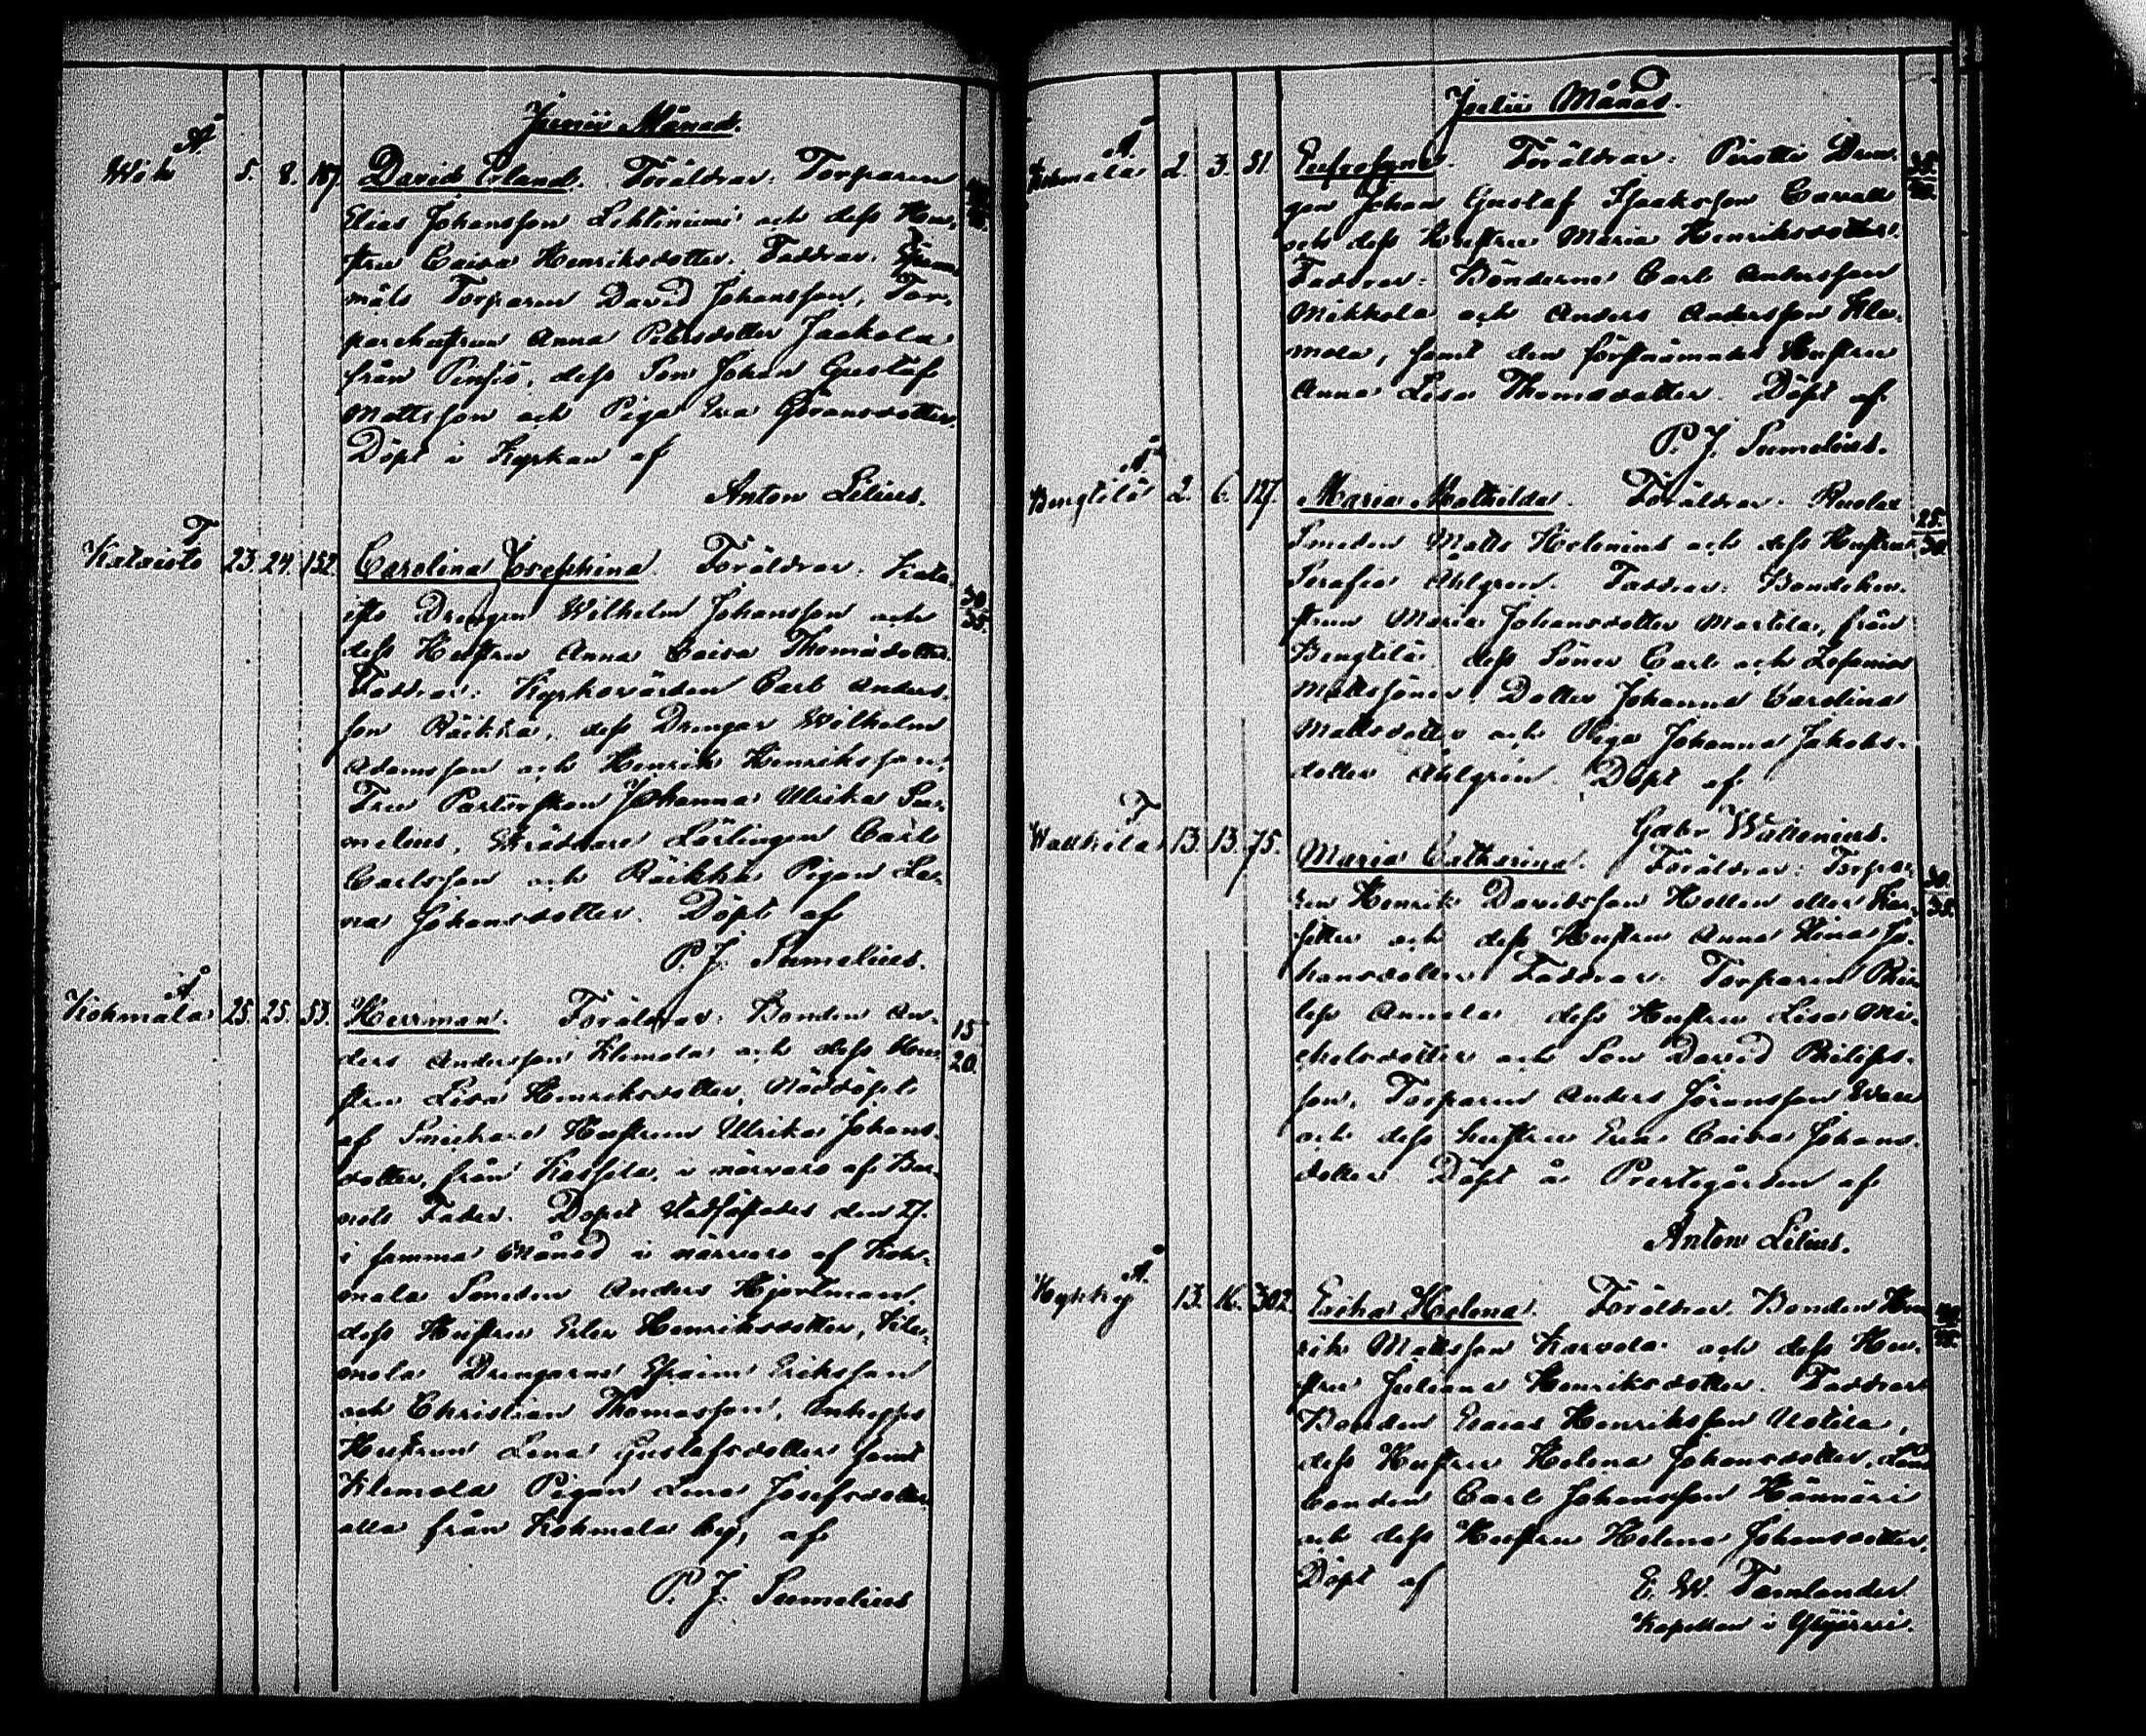 Junii Månad.
A
Wik 5. 8. 187 David Erland. Föräldrar: Torparen
Elias Johansson Lehtiniemi och dess Hu-
stru Caisa Henriksdotter. Faddrar:
måls Torparen David Johansson, Tor-
parehustrun Anna Petersdotter Jaakola
från Pinsiö, dess Son Johan Gustaf
Mattsson och Piga Eva Göransdotter.
Döpt i Kyrkan af
Anton Lilius.
T
Kataisto 23. 24. 152. Carolina Josephina. Föräldrar: Kata-
isto Drengen Wilhelm Johansson och
dess Hustru Anna Caisa Thomasdotter.
30.
35.
Faddrar: Kyrkovärden Carl Anders-
son Räikkä, dess Drengar Wilhelm
Adamsson och Henrik Henriksson,
Fru Pastorskan Johanna Ulrika Su-
melius, Skräddare Lärlingen Carl
Carlsson och Räikkä Pigan Le-
na Johansdotter. Döpt af
P. J. Sumelius.
A
Kohmala 25. 25. 53. Herrman. Föräldrar: Bonden An-
15
20.
ders Andersson Klemola och dess Hu-
stru Lisa Henriksdotter, Näddöpt
af Hustrun Ulrika Johans-
dotter, från Kassila, i närvaro af Bar-
nets Fader. Dopet Stadfästades den 27.
i samma Månad i närvaro af Koh-
mala Smeden Anders Hjortman,
dess Hustru Henriksdotter, Kle-
mola Drengarne Efraim Eriksson
och Christian Thomasson, Inhyses
Hustrun Lena Gustafsdotter samt
Klemola Pigan Lena Josefsdotter
alla från Kohmala by, af
P. J. Sumelius
Julii Månad.
A
Kohmala 2. 3. 51. Eufrosyne. Föräldrar: Pirtti Dren-
35.
40.
gen Johan Gustaf Isaaksson Cavall
och dess Hustru Maria Henriksdotter.
Faddrar: Bönderne Carl Andersson
Mikkola och Anders Andersson Kle-
mola, samt den förstnämndes Hustru
Anna Lisa Thomasdotter. Döpt af
P. J. Sumelius.
A
Bengtilä 2. 6. 127. Maria Mathilda. Föräldrar:
25.
30.
Smeden Matts Helenius och dess Hustru
Serafia Ahlgren. Faddrar: Bondehu-
strun Maria Johansdotter Martila, från
Bengtilä, dess Söner Carl och Zefanias
Mattssöner, Dotter Johanna Carolina
Mattsdotter och Piga Johanna Jakobs-
dotter Ahlgren. Döpt af
Gabr Wallenius.
T
Wallkila 13. 13. 75. Maria Catharina. Föräldrar: Torpa-
30.
35.
ren Henrik Davidsson Hellen eller
och dess Hustru Anna Stina Jo-
hansdotter. Faddrar: Torparen Phi-
lip Annala dess Hustru Lisa Mi-
chelsdotter och Son David Philips-
son, Torparen Anders Göransson
och dess hustru Eva Caisa Johans-
dotter. Döpt å Prestegården af
Anton Lilius.
A
Hyrkky 13. 16. 302. Erika Helena. Föräldrar. Bonden Hen-
rik Mattsson Karvola och dess Hu-
stru Juliana Henriksdotter. Faddrar
Bonden Esaias Henriksson Uotila,
dess Hustru Helena Johansdotter,
bonden Carl Johansson Hännäri
och dess Hustru Helena Johansdotter.
Döpt af
E. W. Tamlander
Kapellan i Ylöjärvi.